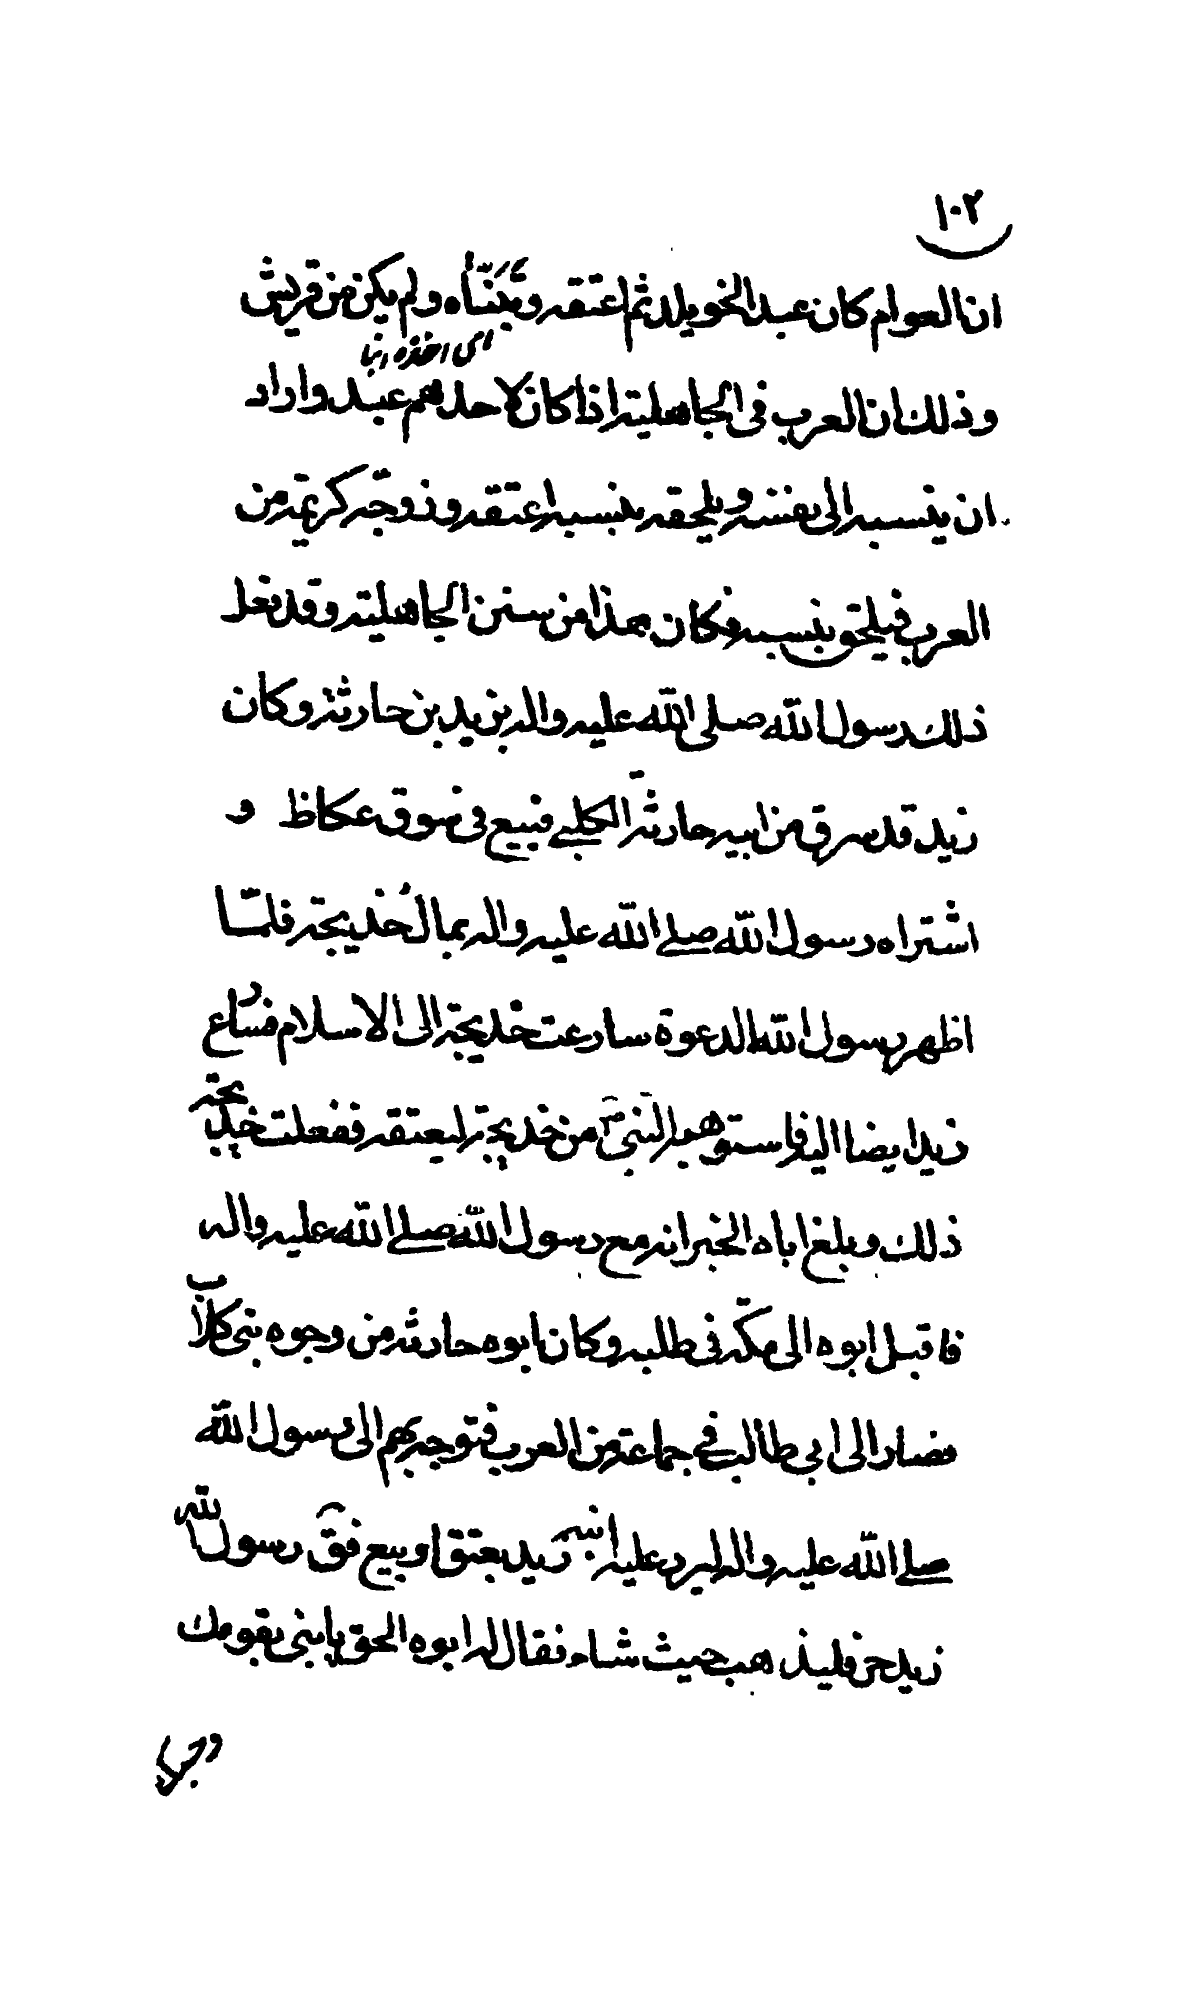 ١٠٢
ان العوام كان عبدا لخويلد ثم اعتقه وتبنّاه ولم يكن من قريش
اى اخذه ابنا
وذلك ان العرب فى الجاهلية اذا كان لاحدهم عبد واراد
ان ينسبه الى نفسه ويلحقه بنسبه اعتقه وزوجّه كريمة من
العرب فيلحق بنسبه فكان هذا من سنن الجاهلية وقد فعل
ذلك رسول الله صلى الله عليه واله بزيد بن حارثة وكان
زيد قد سرق من ابيه حارثة الكلبي فبيع فى سوق عكاظ و
اشتراه رسول الله صلى الله عليه واله بمال خديجة فلمّا
اظهر رسول الله الدعوة سارعت خديجة الى الاسلام فسارع
زيد ايضا اليه فاستوهبه النبى ص من خديجة ليعتقه ففعلت خديجة
ذلك وبلغ اباه الخبر انه مع رسول الله صلى الله عليه واله
فاقبل ابوه الى مكّة فى طلبه وكان ابوه حارثة من وجوه بنى كلاب
فصار الى ابي طالب في جماعة من العرب فتوجه بهم الى رسول الله
صلى الله عليه واله ليرد عليه ابنه زيد بعتق او بيع فقٓ رسول الله
زيد حر فليذهب حيث شاء فقال له ابوه الحق يا بنى بقومك